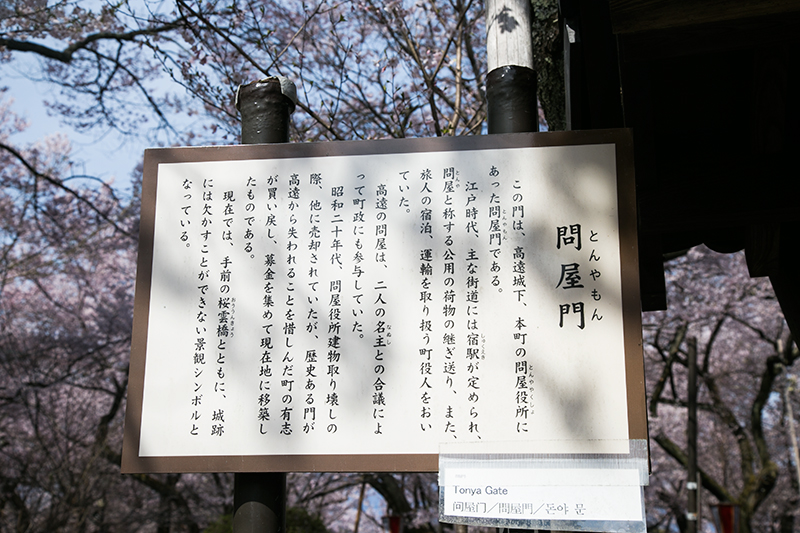 問屋門
とんやもん
この門は、高遠城下、本町の問屋役所に
とんややくしょ
あった問屋門である。
とんやもん
江戸時代、主な街道には宿駅が定められ、
しゅくえき
問屋と称する公用の荷物の継ぎ送り、また、
とんや
旅人の宿泊、運輸を取り扱う町役人をおい
ていた。
高遠の問屋は、二人の名主との合議によ
なぬし
って町政にも参与していた。
昭和二十年代、問屋役所建物取り壊しの
際、他に売却されていたが、歴史ある門が
高遠から失われることを惜しんだ町の有志
が買い戻し、募金を集めて現在地に移築し
たものである。
現在では、手前の桜雲橋とともに、城跡
おううんきょう
には欠かすことができない景観シンボルと
なっている。
Tonya Gate
问屋门／問屋門／돈야 문